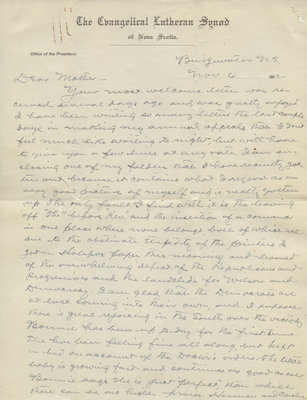 The Evangelical Lutheran Synod
of Nova Scotia.
Office of the President.
Bridgewater N.S.
Nov 6, 1912.
Dear Mother:-
Your most welcome letter was re-
ceived several days ago and was greatly enjoyed.
I have been writing so many letters the last couple
days in making my annual appeals that I don't
feel much like writing to-night, but will have
to give you a few lines at any rate. I am en-
closing one of my folders that I have recently got-
ten out because it contains what I regard as a
very good picture of myself and is neatly gotten
up. The only fault I find with it is the leaving
off the "before Rev." and the insertion of a comma
in one place where none belongs both of which are
due to the obstinate stupidity of the printers. I
got a Halifax paper this morning and learned
of the overwhelming defeat of the Republicans and
Progressives and the landslide for Wilson and
Democracy. I am glad that the Democrats are
at last coming into their own and I suppose
there is great rejoicing in the South over the victory.
Bonnie has been up to-day for the first time.
She has been feeling fine all along but kept
in bed on account of the Doctor's orders. The little
baby is growing fast and continues as good as ever.
Bonnie says she is just perfect, than which
there can be no higher praise. Herman and